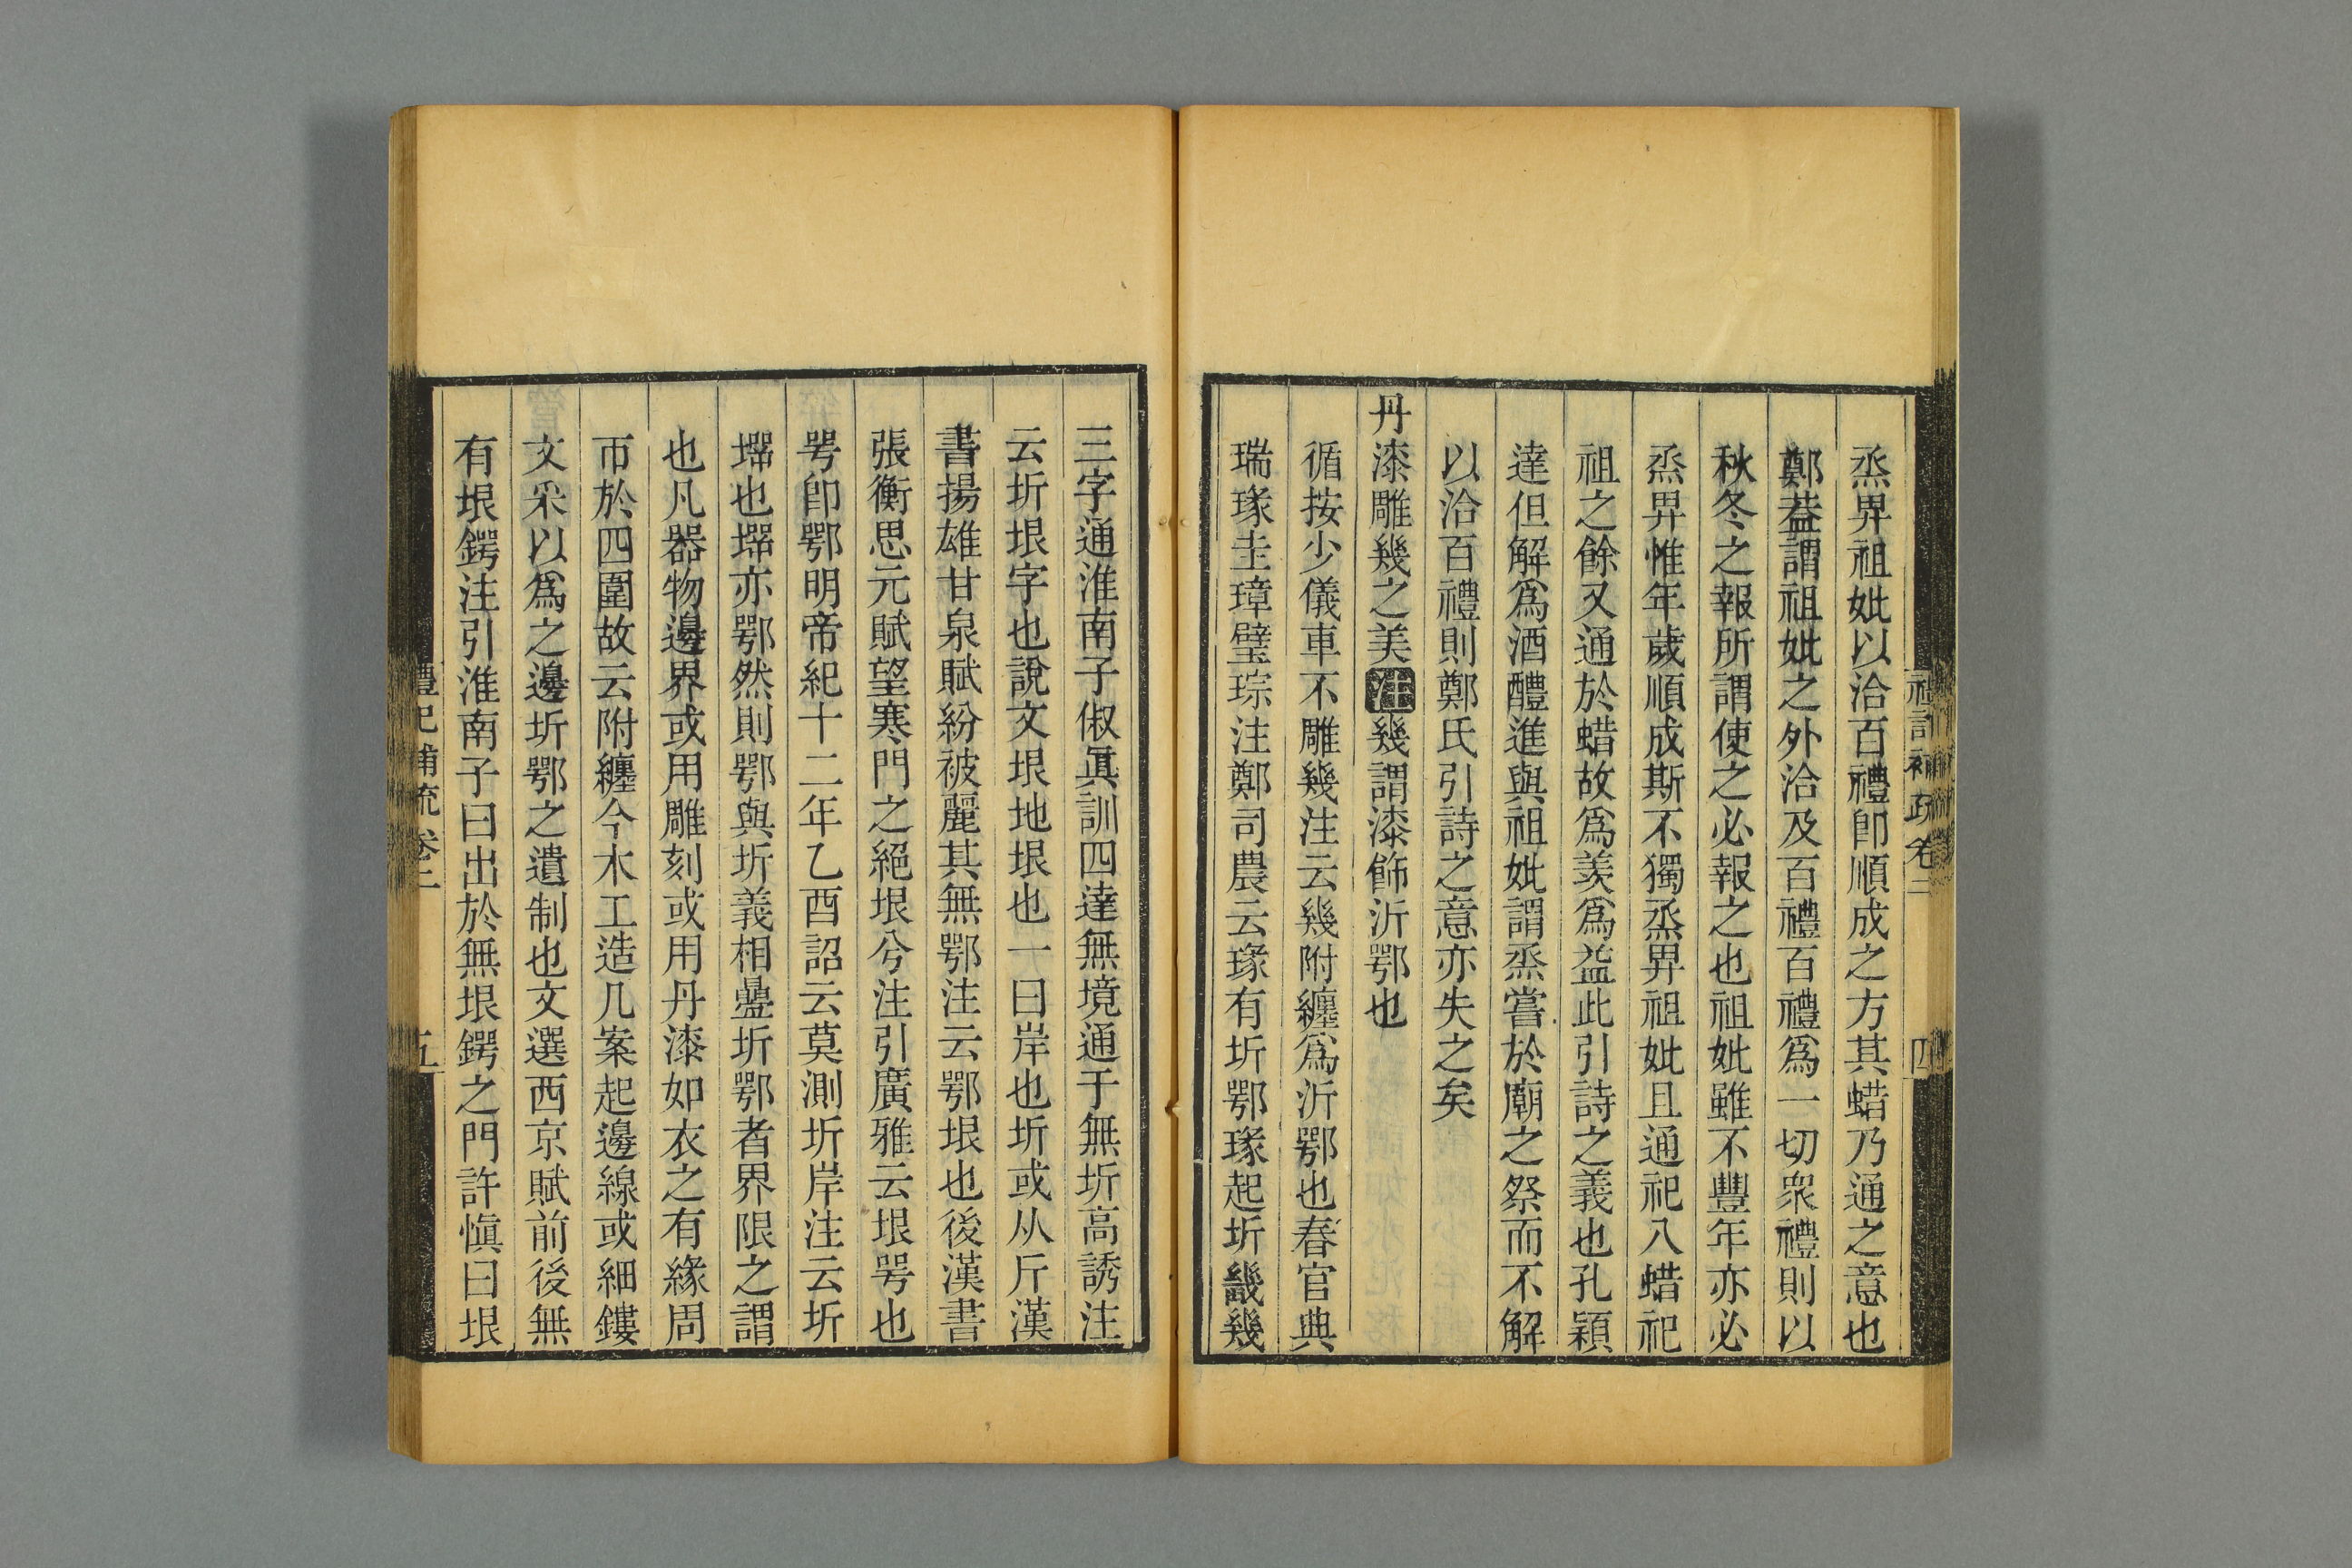 烝畀祖妣以洽百禮卽順成之方其蜡乃通之意也
鄭葢謂祖妣之外洽及百禮百禮爲一切衆禮則以
秋冬之報所謂使之必報之也祖妣雖不豐年亦必
烝畀惟年歲順成斯不獨烝畀祖妣且通祀八蜡祀
祖之餘又通於蜡故爲羨爲益此引詩之義也孔穎
達但解爲酒醴進與祖妣謂烝嘗於廟之祭而不解
以洽百禮則鄭氏引詩之意亦失之矣
丹漆雕幾之美注幾謂漆飾沂鄂也
循按少儀車不雕幾注云幾附纏爲沂鄂也春官典
瑞瑑圭璋璧琮注鄭司農云瑑有圻鄂瑑起圻畿幾
三字通淮南子俶眞訓四達無境通于無圻高誘注
云圻垠字也說文垠地垠也一曰岸也圻或从斤漢
書揚雄甘泉賦紛被麗其無鄂注云鄂垠也後漢書
張衡思元賦望寒門之絕垠兮注引廣雅云垠咢也
咢卽鄂明帝紀十二年乙酉詔云莫測圻岸注云圻
堮也堮亦鄂然則鄂與圻義相疊圻鄂者界限之謂
也凡器物邊界或用雕刻或用丹漆如衣之有緣周
帀於四圍故云附纏今木工造几案起邊線或細鏤
文采以爲之邊圻鄂之遺制也文選西京賦前後無
有垠鍔注引淮南子曰出於無垠鍔之門許愼曰垠
禮記補疏卷二
五